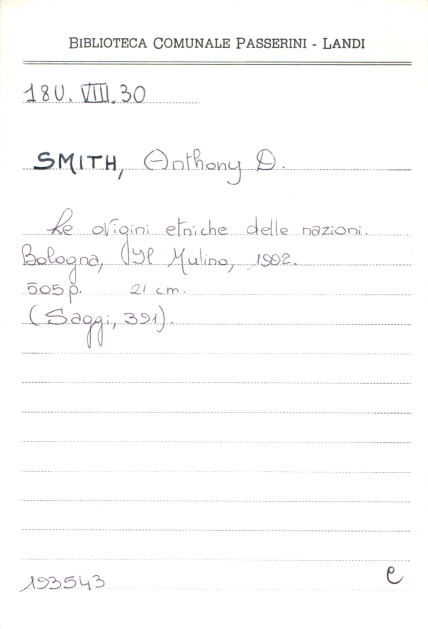 BIBLIOTECA COMUNALE PASSERINI - LANDI
18U. VIII. 30
SMITH, Anthony D.
Le origini etniche delle nazioni.
Bologna, Il Mulino, 1992.
505 p. 21 cm.
(Saggi, 391).
193543 e